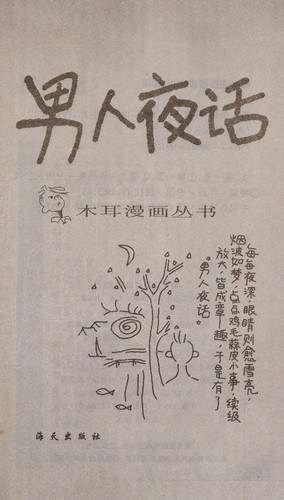 男人夜话
木耳漫画丛书
每每夜深，眼睛则愈雪亮，
烟波如梦，点点鸡毛蒜皮小事，续级
放大，皆成章趣，于是有了
“男人夜话”
海天出版社